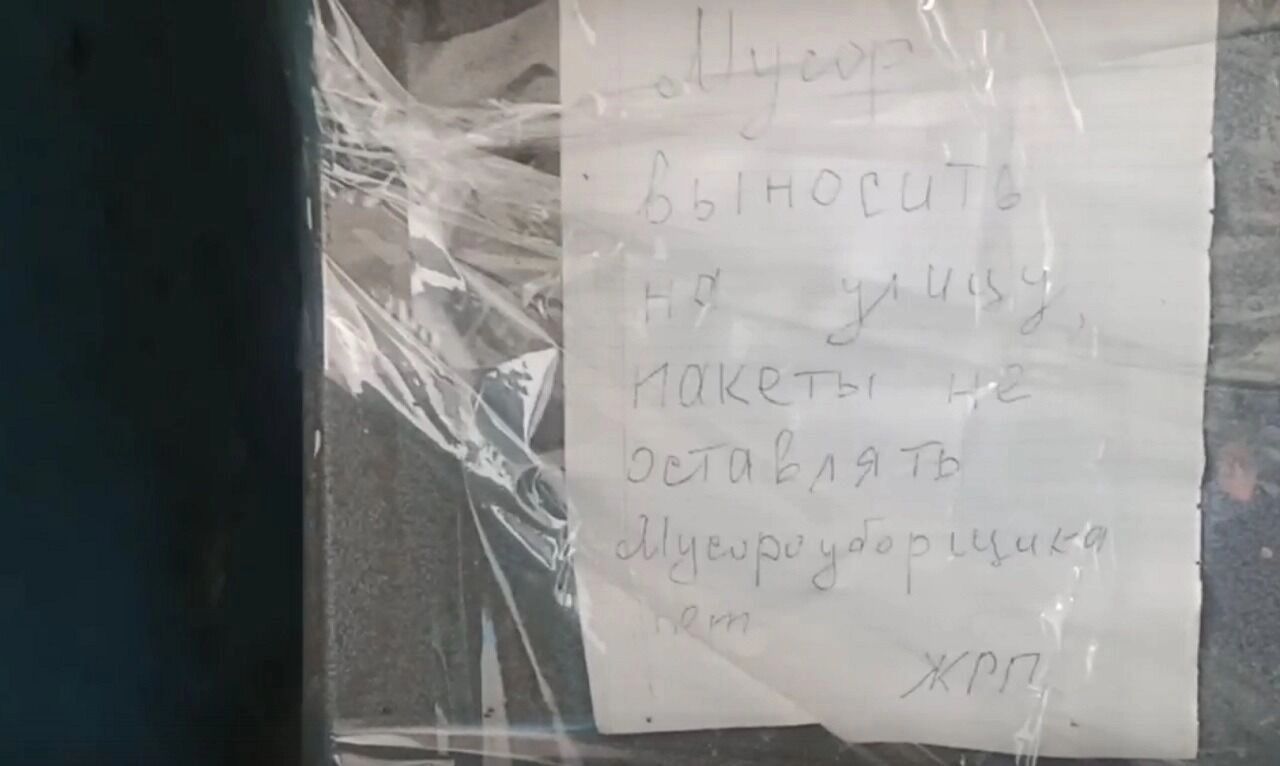 Мусор
выносить
на улицу,
пакеты не
оставлять
Мусороуборщика
нет
ЖРП